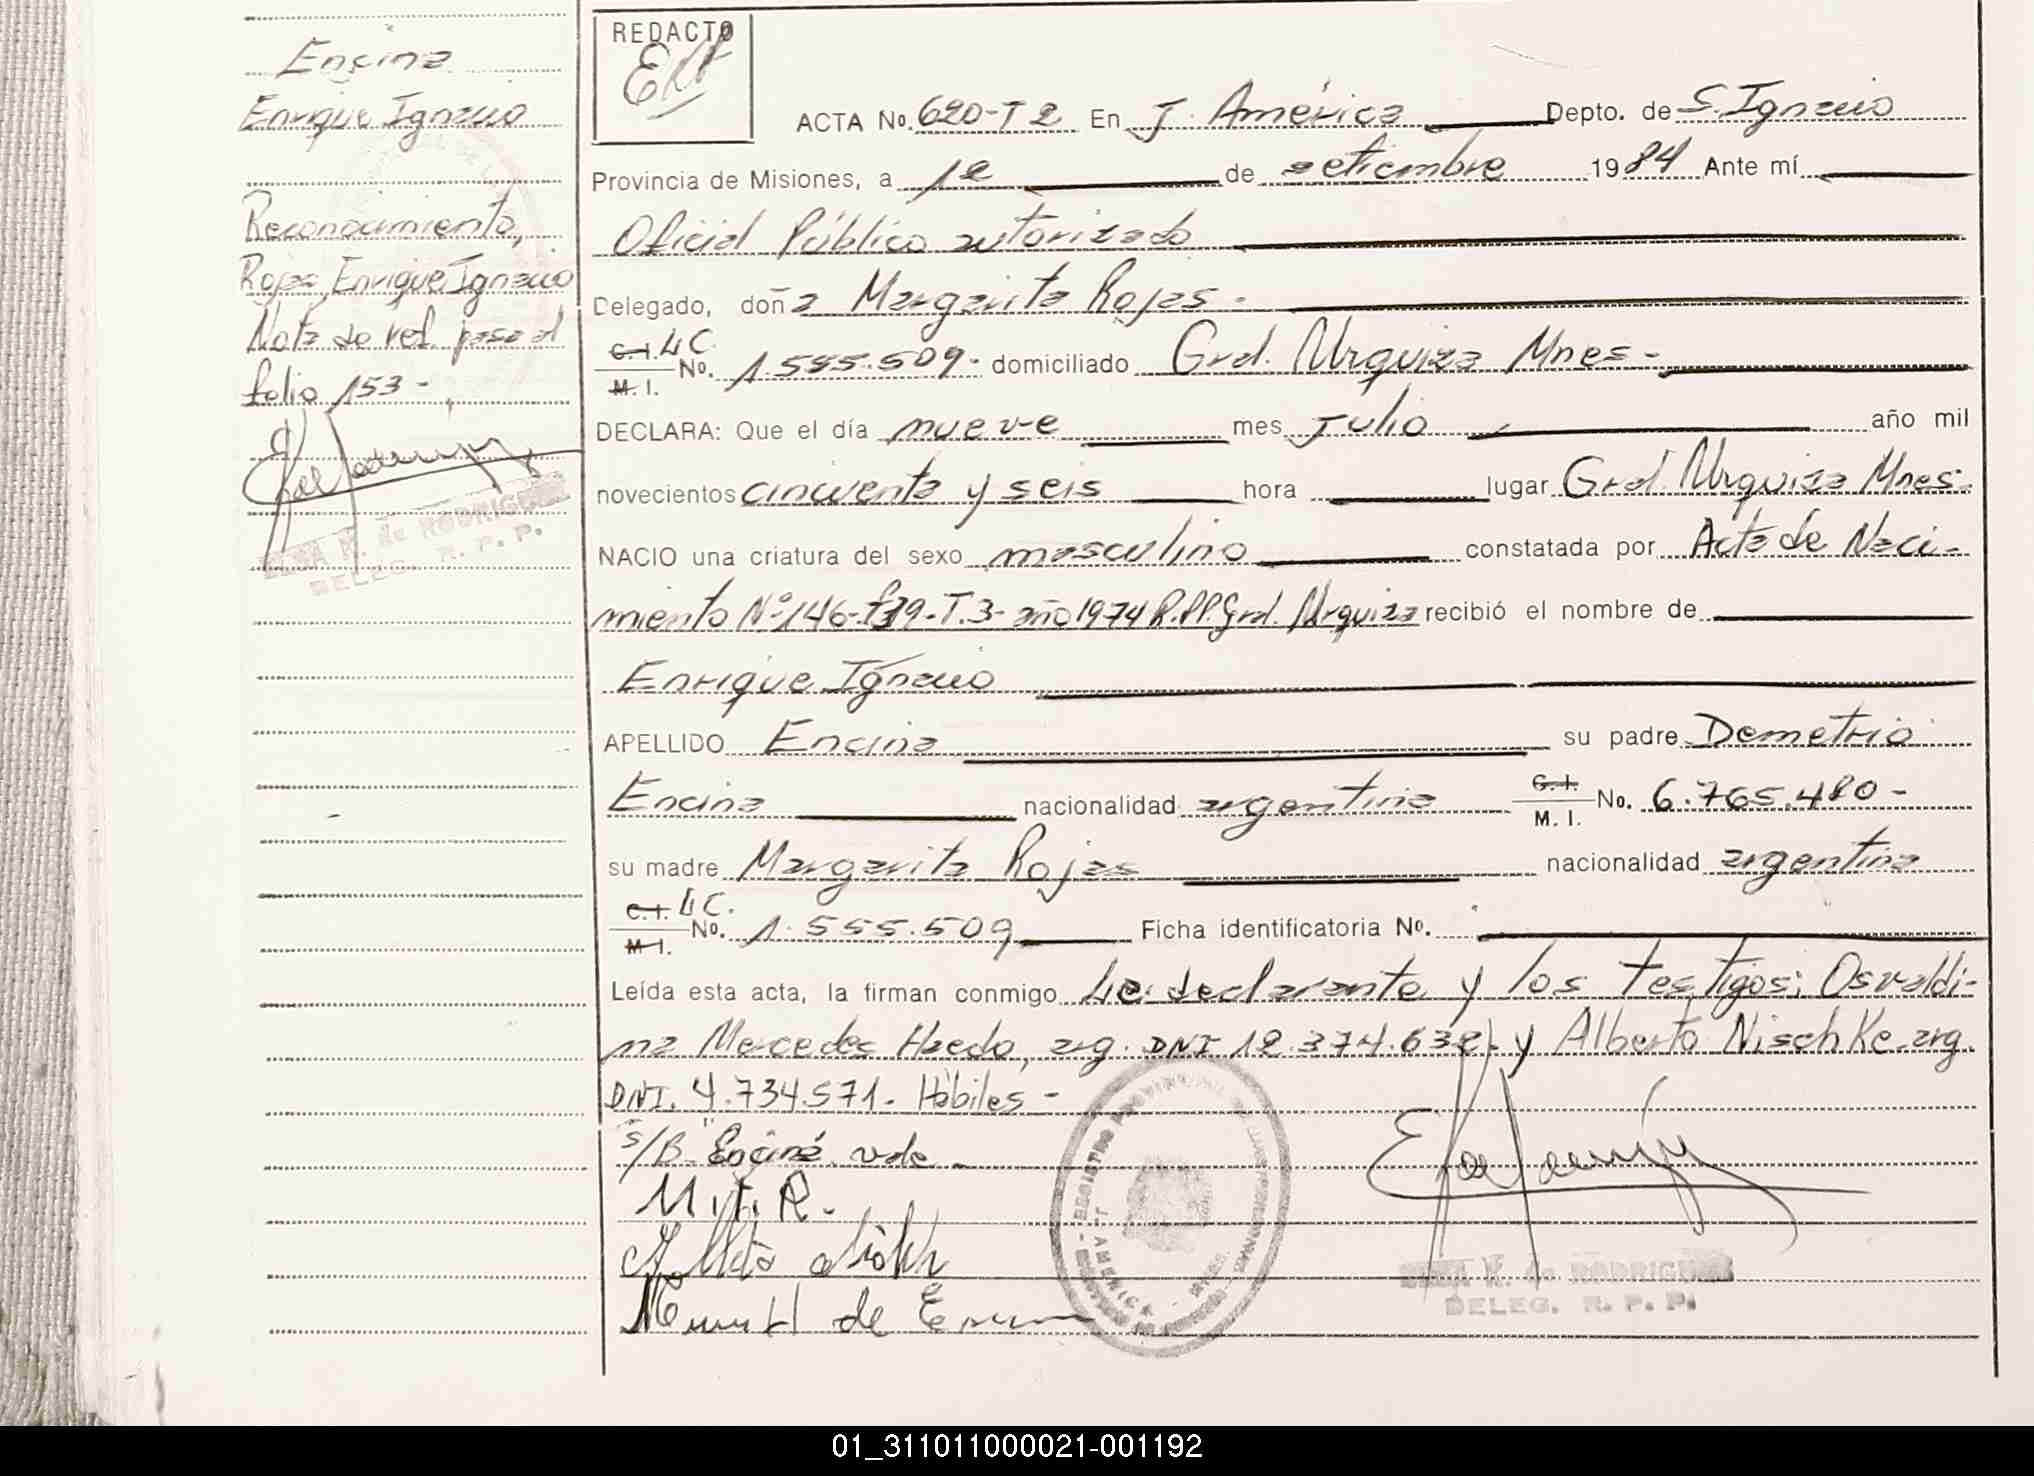 Encina
Enrique Ignacio
Reconocimiento,
Rojas, Enrique Ignacio
Nota de ref. pasa al
folio 153-
ELSA K. de RODRIGUEZ
DELEG. R. P. P.
REDACTO
ACTA No. 620-T2 En J. América Depto. de S. Ignacio
Provincia de Misiones, a 12 de setiembre 1984 Ante mí
Oficial Público autorizado
Delegado, doña Margarita Rojas.
C.I. LC.
No. 1.555.509- domiciliado Gral. Urquiza Mnes-
M. I.
DECLARA: Que el día nueve mes Julio año mil
novecientos cincuenta y seis hora lugar Gral. Urquiza Mnes.
NACIO una criatura del sexo masculino constatada por Acta de Naci-
miento Nº 146-f39-T.3- año 1974 R.PP. Gral. Urquiza recibió el nombre de
Enrique Ignacio
APELLIDO Encina su padre Demetrio
Encina nacionalidad argentina C.I. M. I. No. 6.765.480-
su madre Margarita Rojas nacionalidad argentina
C.I. LC.
No. 1.555.509 Ficha identificatoria No.
M. I.
Leída esta acta, la firman conmigo La declarante y los testigos: Osvaldi-
na Mercedes Haedo, arg. DNI 12.374.632- y Alberto Nischke. arg.
DNI. 4.734.571. Hábiles-
s/B "Encina" vale-
M.I.R.
REGISTRO PROVINCIAL DE LAS PERSONAS
J. AMERICA
ELSA K. de RODRIGUEZ
DELEG. R. P. P.
01_311011000021-001192